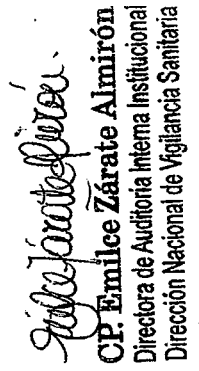 Emilce Zárate Almirón.
CP. Emilce Zárate Almirón
Directora de Auditoría Interna Institucional
Dirección Nacional de Vigilancia Sanitaria